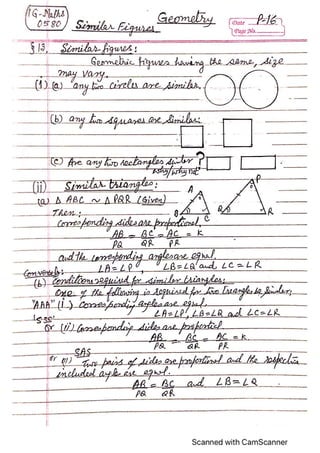 IG-Maths
0580
Similar Figures
Geometry
Date P-16
Page No.
§ 13. Similar figures:
Geometric figures having the same, size
may vary.
(i) (a) any two circles are similar.
(b) any two squares are similar.
(c) Are any two rectangles similar?
why/why not
(ii) Similar triangles:
(a) Δ ABC ~ Δ PQR (Given)
Then;
Corresponding sides are proportional.
AB = BC = AC = K
PQ QR PR
and the corresponding angles are equal.
∠A = ∠P, ∠B = ∠Q and ∠C = ∠R
A
B
C
P
Q
R
Conversely:
(b) Conditions required for similar triangles:
One of the following is required for two triangles to be similar;
"AAA" (i) Corresponding angles are equal.
∠A = ∠P, ∠B = ∠Q and ∠C = ∠R
'SSS'
or (ii) Corresponding sides are proportional
AB = BC = AC = K.
PQ QR PR
SAS
or (iii) Two pairs of sides are proportional and the respective
included angle are equal.
AB = BC and ∠B = ∠Q
PQ QR
Scanned with CamScanner